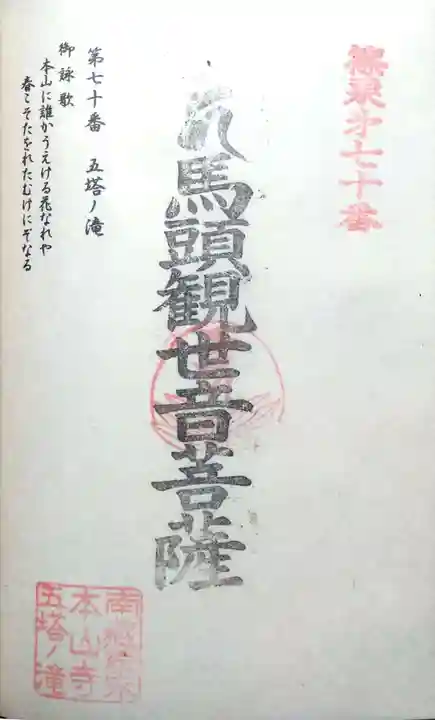 篠栗第七十番
馬頭観世音菩薩
第七十番 五塔ノ滝
御詠歌
本山に誰かうえける花なれや
春こそたをれたむけにぞなる
本山寺
五塔ノ滝